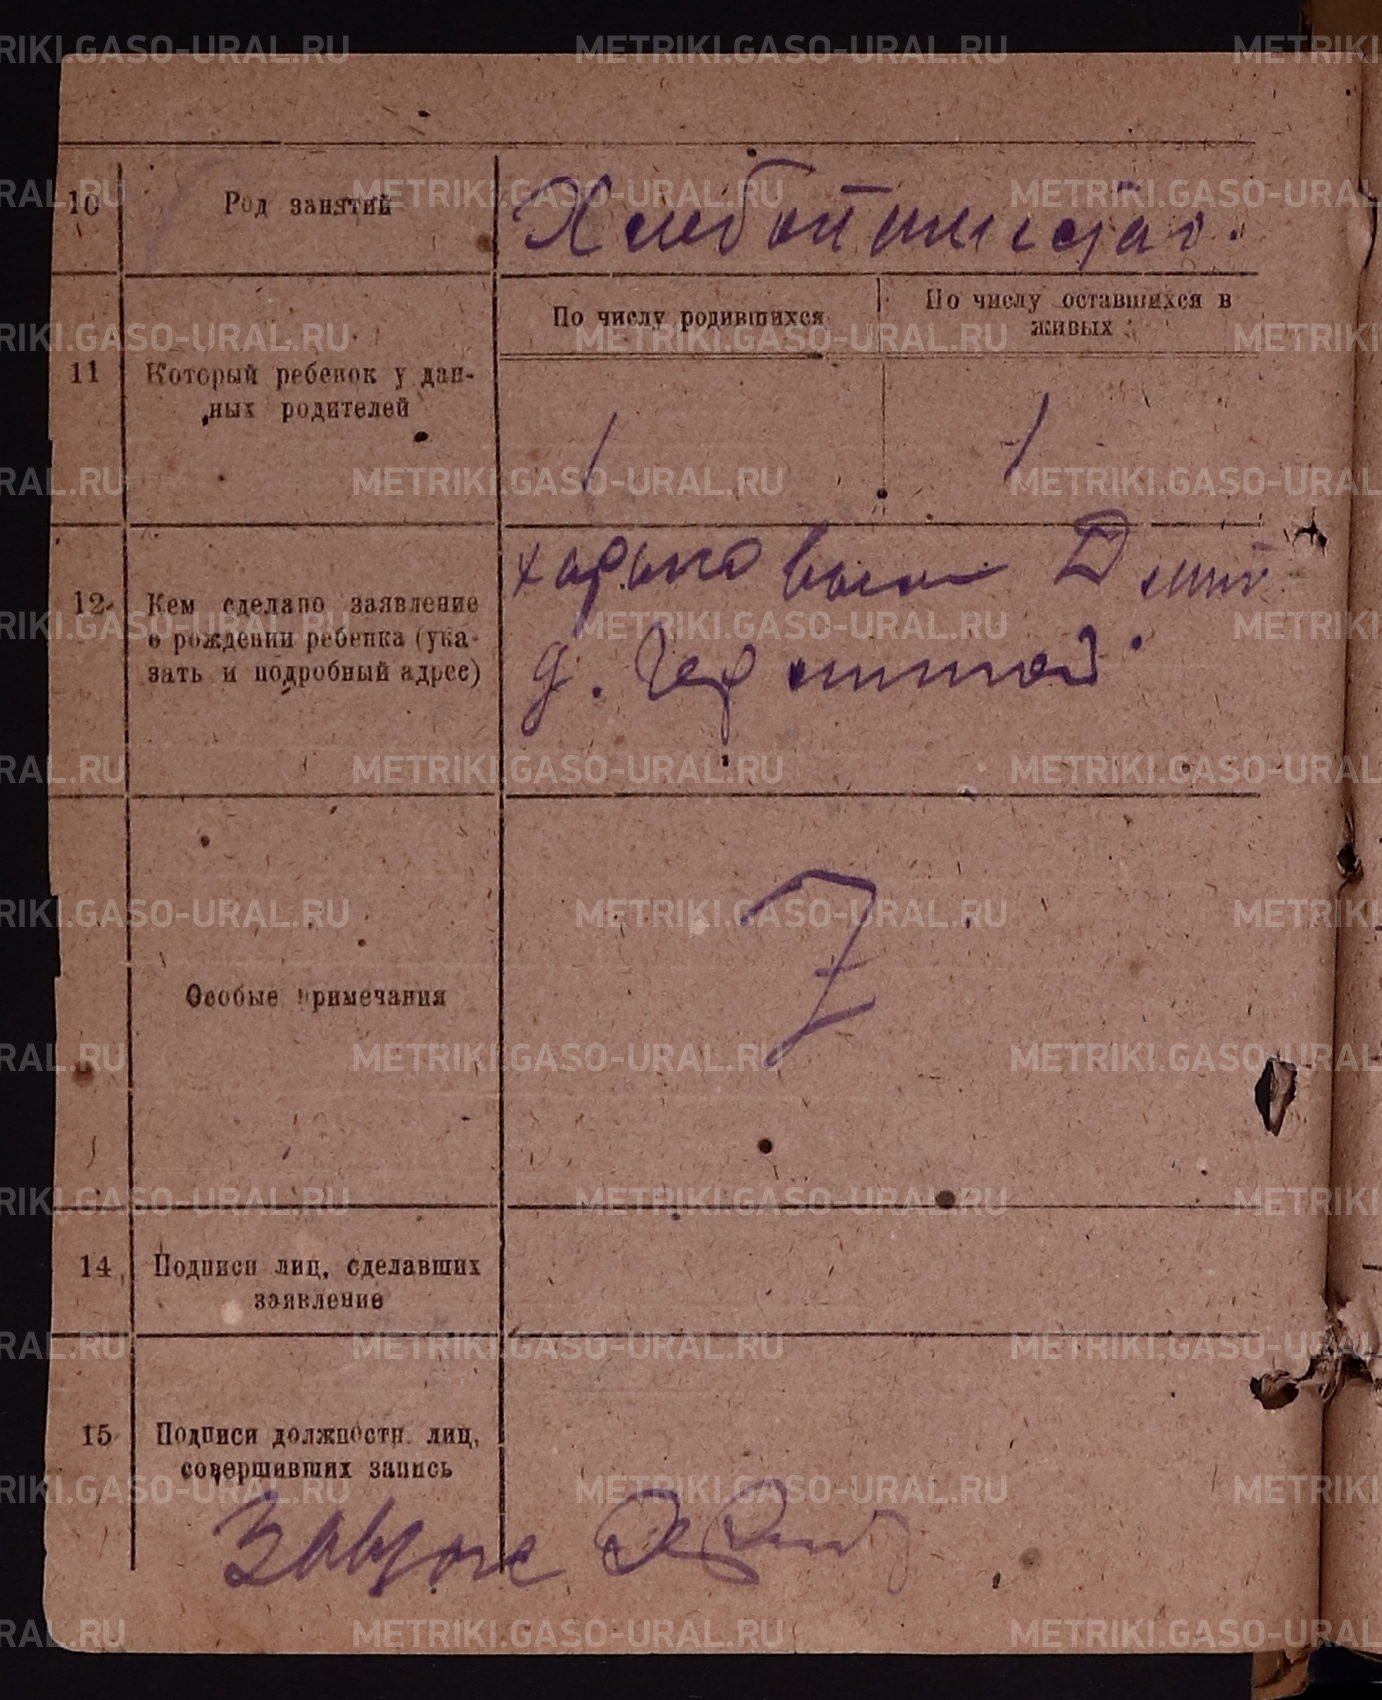 10 Род занятий Хлебопашество.
По числу родившихся
По числу оставшихся в
живых
11 Который ребенок у дан-
ных родителей
1 1
12 Кем сделано заявление
о рождении ребенка (ука-
зать и подробный адрес)
д.
Особые примечания
14 Подписи лиц, сделавших
заявление
15 Подписи должностн. лиц,
совершивших запись
METRIKI.GASO-URAL.RU